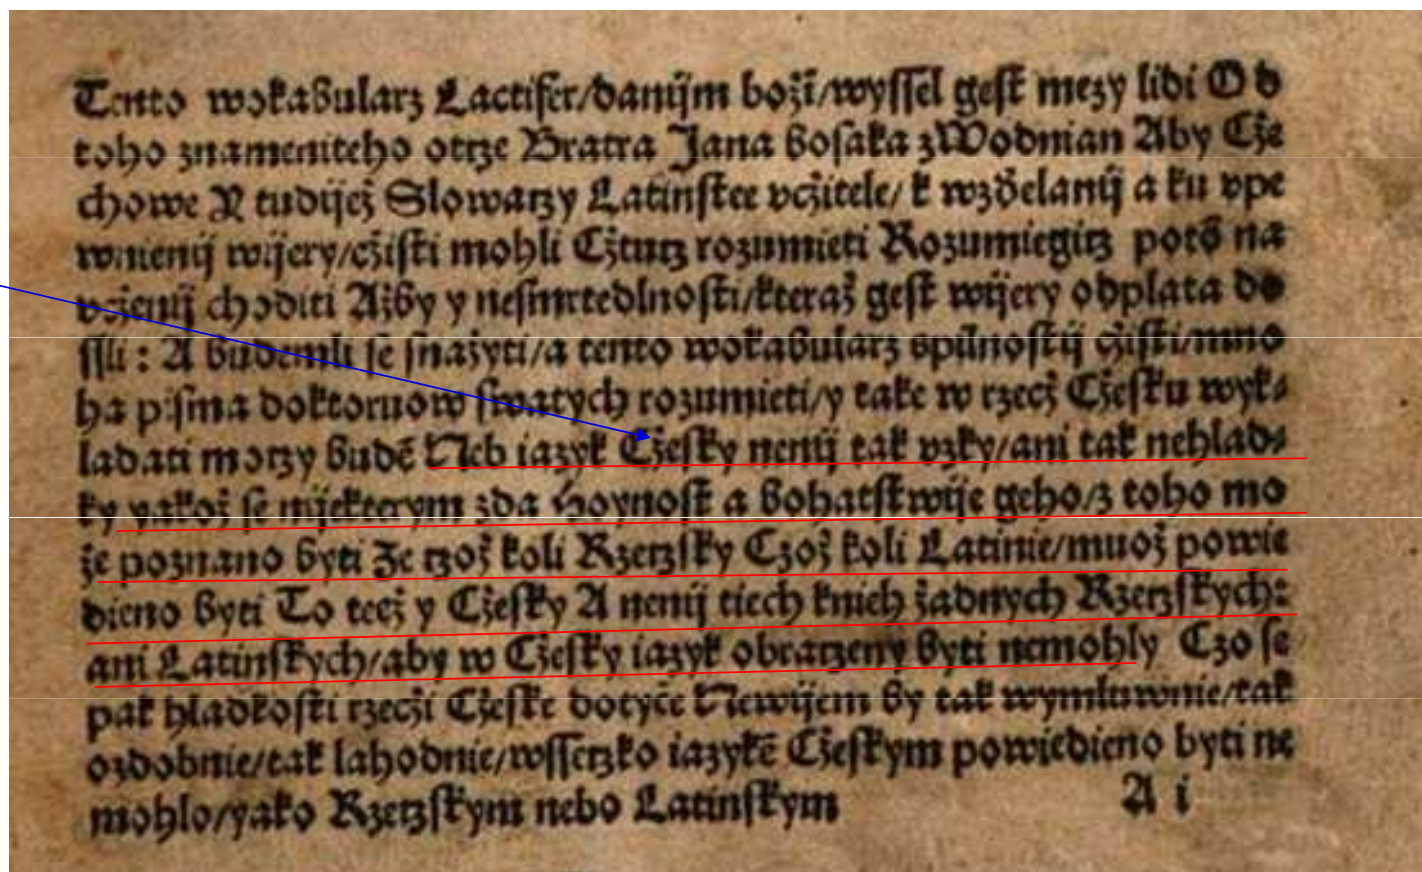 Tento wokabularz Lactifer/danijm božī/wyssel gest mezy lidi Od
toho znameniteho otcze Bratra Jana bosaka zWodnian Aby Cže
chowe Y tudijež Slowarzy Latinstee včitele/ k wzdelanij a ku vpe
wnienij wijery/cžisti mohli Cžtucz rozumieti Rozumiegicz potō na
včenij choditi Ažby y nesmrtedlnosti/kteraž gest wijery odplata do
ssli : A budemli se snažyti/a tento wokabularz spilnostij cžisti/mno
ha pisma doktoruow swatych rozumieti/y take w rzecž Cžesku wyk⸗
ladati moczy budē Neb iazyk Cžesky nenij tak vzky/ani tak nehlad⸗
ky yakož se nijekterym zda Hoynost a bohatstwije geho/z toho mo
že poznano byti Ze czož koli Rzeczsky Czož koli Latinie/muož powie
dieno byti To tecž y Cžesky A nenij tiech knieh žadnych Rzeczskych:
ani Latinskych/aby w Cžesky iazyk obraczeny byti nemohly Czo se
pak hladkosti rzecži Cžeske dotyče Newijem by tak wymluwnie/tak
ozdobnie/tak lahodnie/wsseczko iazykē Cžeskym powiedieno byti ne
mohlo/yako Rzeczskym nebo Latinskym
A i